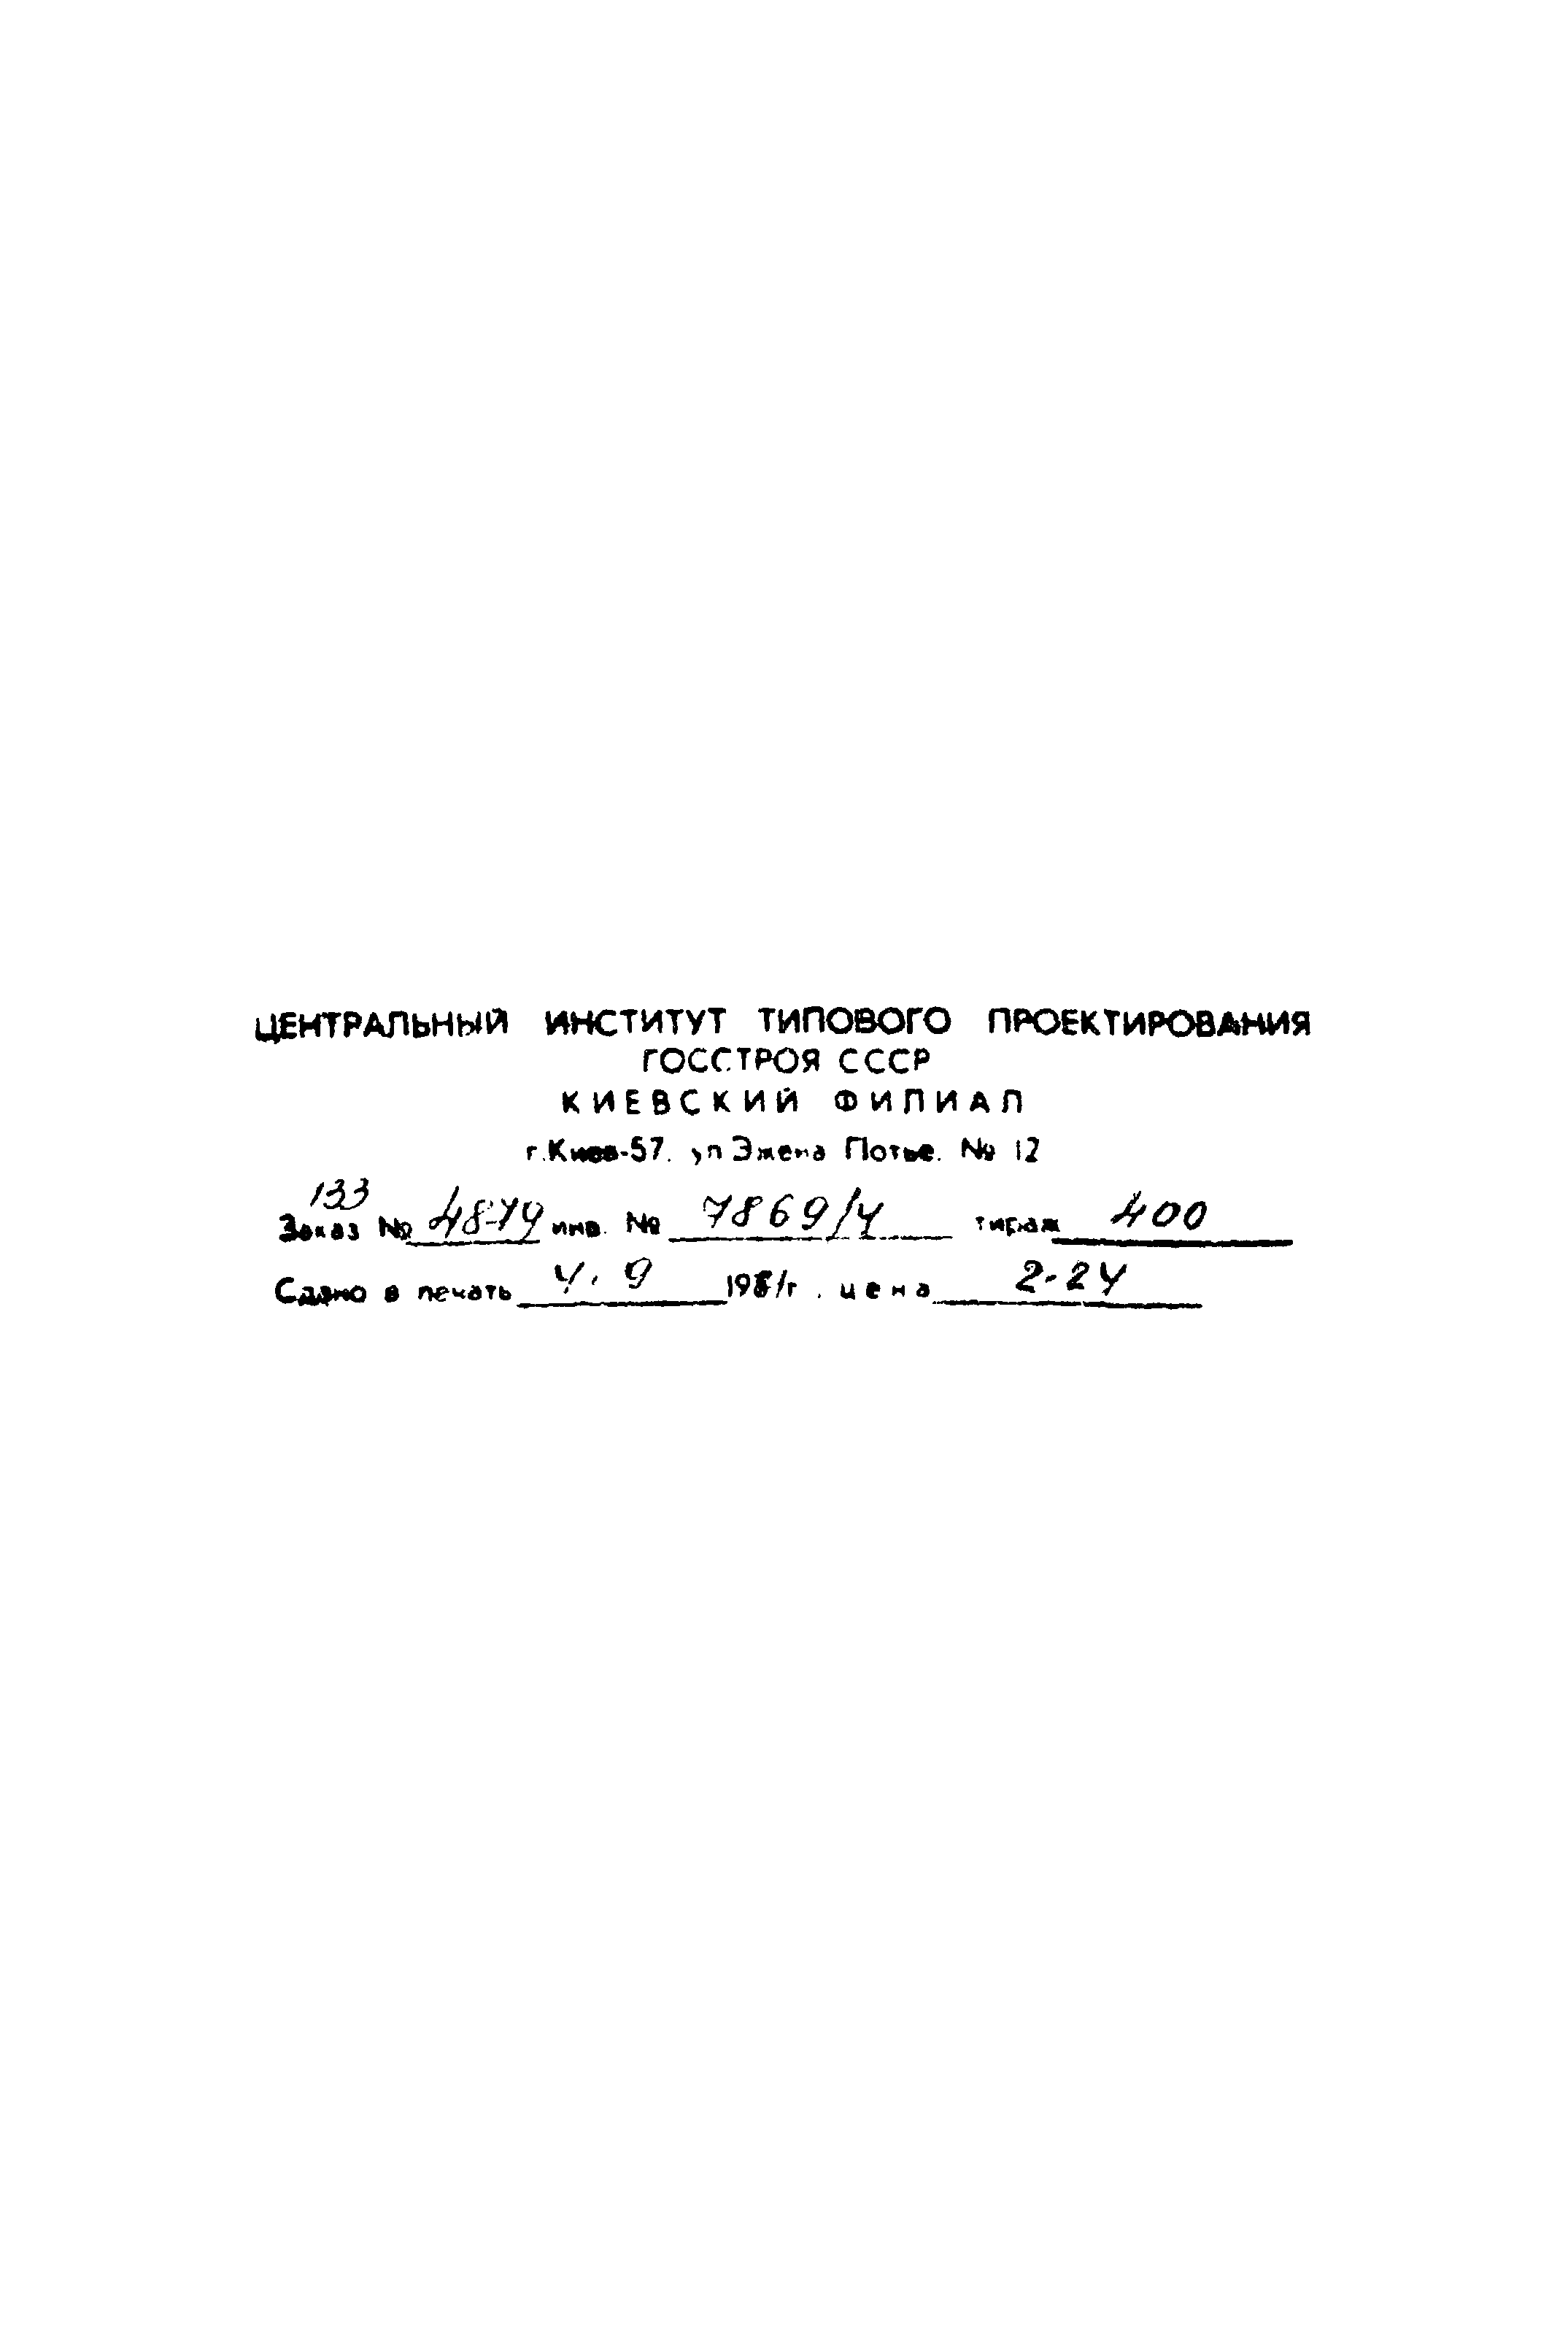 ЦЕНТРАЛЬНЫЙ ИНСТИТУТ ТИПОВОГО ПРОЕКТИРОВАНИЯ
ГОССТРОЯ СССР
КИЕВСКИЙ ФИЛИАЛ
г.Киев-57. ул Эжена Потье. № 12
133
Заказ № инв. № 7869/4 тираж 400
Сдано в печать 4.9 1981г. цена 2-24